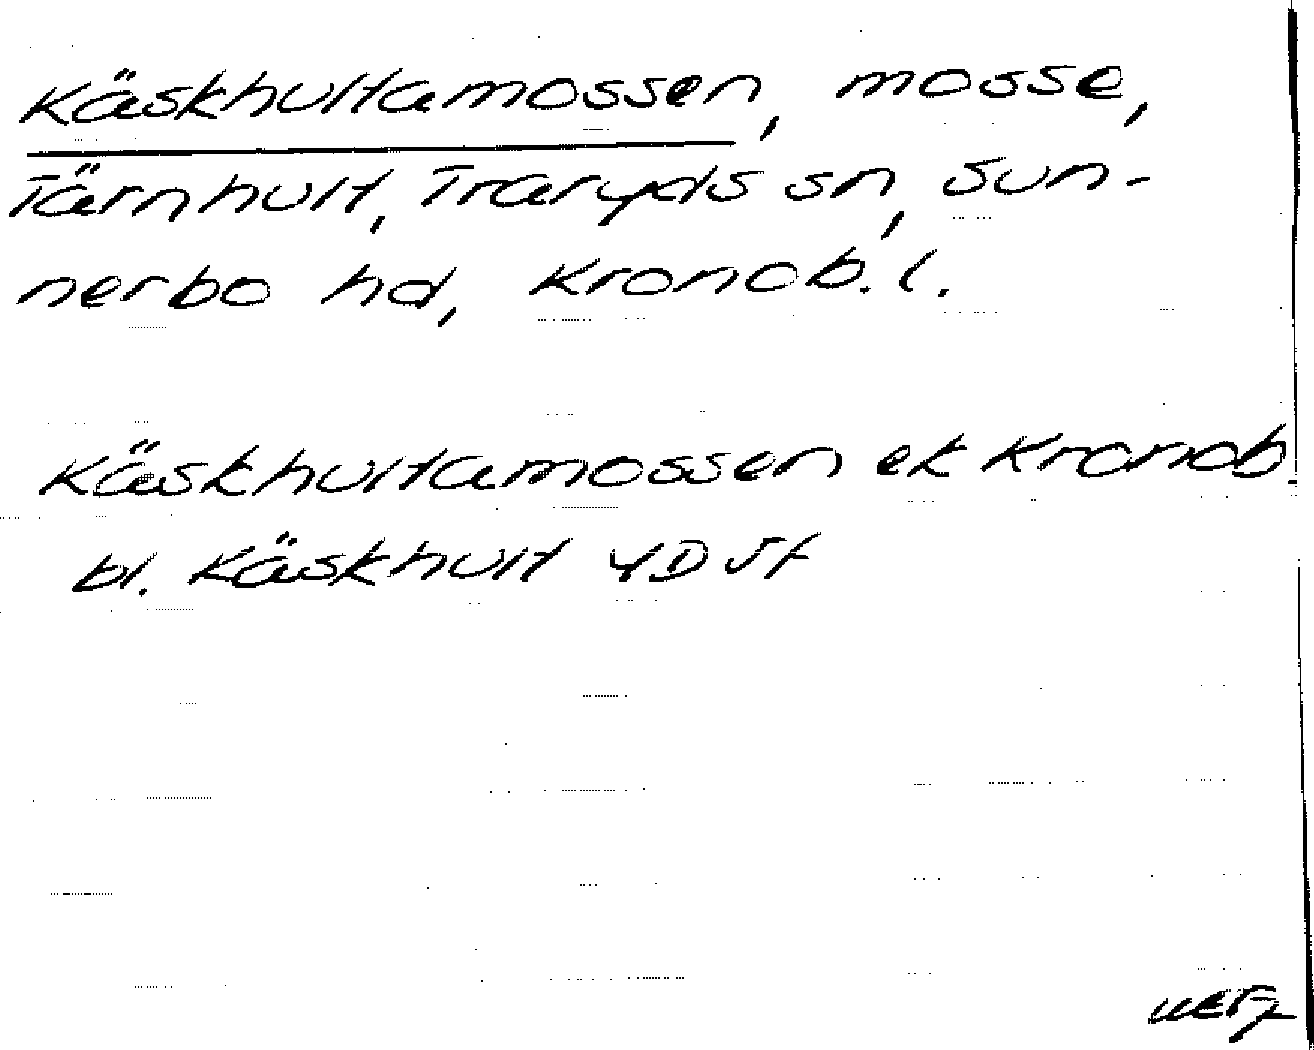 Käskhultamossen, mosse,
Tärnhult, Traryds sn, Sun-
nerbo hd, Kronob. l.
Käskhultamossen ek Kronob.
bl. Käskhult 4D 5f